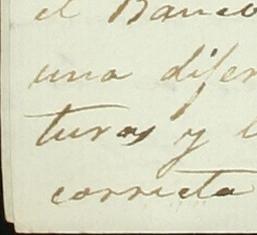 el Banco
una difer
turas y l
correcta